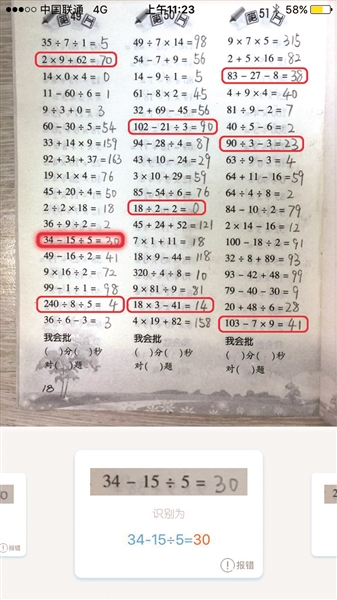 中国联通 4G 上午11:23 58%
49
35 ÷ 7 ÷ 1 = 5
2 × 9 + 62 = 70
14 × 0 × 4 = 0
11 − 60 ÷ 6 = 1
9 ÷ 3 + 0 = 3
60 − 30 ÷ 5 = 54
33 + 14 × 9 = 159
92 + 34 + 37 = 163
19 × 1 × 4 = 76
45 + 20 ÷ 4 = 50
2 ÷ 2 × 18 = 18
36 ÷ 9 ÷ 2 = 2
34 − 15 ÷ 5 = 30
49 − 16 ÷ 2 = 41
9 × 16 ÷ 2 = 72
99 − 1 ÷ 1 = 98
240 ÷ 8 ÷ 5 = 4
36 ÷ 6 − 3 = 3
我会批
( )分( )秒
对( )题
第50
49 ÷ 7 × 14 = 98
54 − 7 + 9 = 56
14 − 9 ÷ 1 = 5
61 − 8 × 2 = 45
32 + 69 − 45 = 56
102 − 21 ÷ 3 = 90
94 − 28 ÷ 4 = 87
43 + 10 − 24 = 29
3 × 10 + 29 = 59
85 − 54 ÷ 6 = 76
18 ÷ 2 − 2 = 0
45 + 24 + 52 = 121
7 × 1 + 11 = 18
18 × 9 − 44 = 118
320 ÷ 4 ÷ 8 = 10
9 × 81 ÷ 9 = 81
18 × 3 − 41 = 14
4 × 19 + 82 = 158
我会批
( )分( )秒
对( )题
第51
9 × 7 × 5 = 315
2 + 5 × 16 = 82
83 − 27 − 8 = 38
4 + 9 × 4 = 40
81 ÷ 9 − 2 = 7
40 ÷ 5 − 6 = 2
90 ÷ 3 − 3 = 23
63 ÷ 9 − 3 = 4
64 + 11 − 16 = 59
64 ÷ 4 ÷ 8 = 2
84 − 10 ÷ 2 = 79
2 × 14 − 16 = 12
100 − 18 ÷ 2 = 91
32 ÷ 8 + 89 = 93
93 − 42 + 48 = 99
79 − 40 − 30 = 9
20 + 48 ÷ 6 = 28
103 − 7 × 9 = 41
我会批
( )分( )秒
对( )题
18
34 − 15 ÷ 5 = 30
识别为
34-15÷5=30
报错
报错